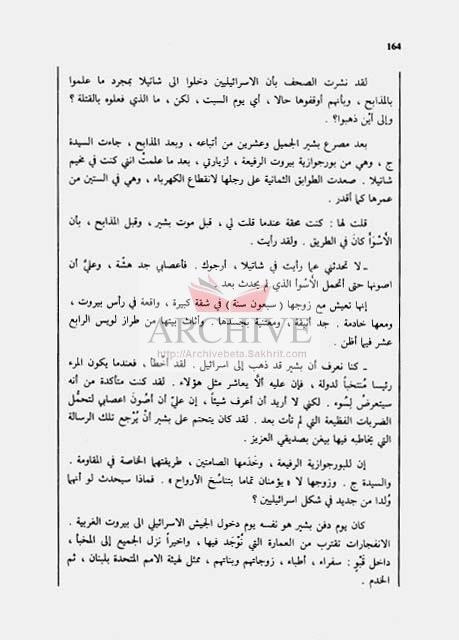 164
لقد نشرت الصحف بأن الاسرائيليين دخلوا الى شاتيلا بمجرد ما علموا
بالمذابح ، وبأنهم أوقفوها حالا ، أي يوم السبت ، لكن ، ما الذي فعلوه بالقتلة ؟
وإلى أيْن ذهبوا؟ .
بعد مصرع بشير الجميل وعشرين من أتباعه ، وبعد المذابح ، جاءت السيدة
ج ، وهي من بورجوازية بيروت الرفيعة ، لزيارتي ، بعد ما علمتْ انني كنت في مخيم
شاتيلا . صعدت الطوابق الثمانية على رجلها لانقطاع الكهرباء ، وهي في الستين من
عمرها كما أقدر .
قلت لها : كنت محقة عندما قلت لي ، قبل موت بشير ، وقبل المذابح ، بأن
الأَسْوَأ كان في الطريق . ولقد رأيت .
ـ لا تحدثني عما رأيت في شاتيلا ، أرجوك . فأعصابي جد هشّة ، وعليّ أن
اصونها حتى أتحمل الأسْوأ الذي لم يحدث بعد .
إنها تعيش مع زوجها ( سبعون سنة ) في شقة كبيرة ، واقعة في رأس بيروت ،
ومعها خادمة . جد أنيقة ، ومعتنية بجسدها . وأثاث بيتها من طراز لويس الرابع
عشر فيما أظن .
ARCHIVE
http://Archivebeta.Sakhrit.com
ـ كنا نعرف أن بشير قد ذهب إلى اسرائيل . لقد أخطأ ، فعندما يكون المرء
رئيسا مُنتخباً لدولة ، فإن عليه ألّا يعاشر مثل هؤلاء . لقد كنت متأكدة من أنه
سيتعرضُ لِسوء . لكني لا أريد أن أعرف شيئاً ، إن عليّ أن أصُونَ اعصابي لتحمُّل
الضربات الفظيعة التي لم تأت بعد . لقد كان يتحتم على بشير أنْ يُرْجع تلك الرسالة
التي يخاطبه فيها بيغن بصديقي العزيز .
إن للبورجوازية الرفيعة ، وخَدَمها الصامتين ، طريقتهما الخاصة في المقاومة .
والسيدة ج . وزوجها لا « يؤمنان تماما بتناسُخ الأرواح » . فماذا سيحدث لو أنهما
وُلدا من جديد في شكل اسرائيليين ؟
كان يوم دفن بشير هو نفسه يوم دخول الجيش الاسرائيلي الى بيروت الغربية .
الانفجارات تقترب من العمارة التي نُوْجَد فيها ، واخيراً نزل الجميع إلى المخبأ ،
داخل قَبْوٍ : سفراء ، أطباء ، زوجاتهم وبناتهم ، ممثل لهيئة الامم المتحدة بلبنان ، ثم
الخدم .